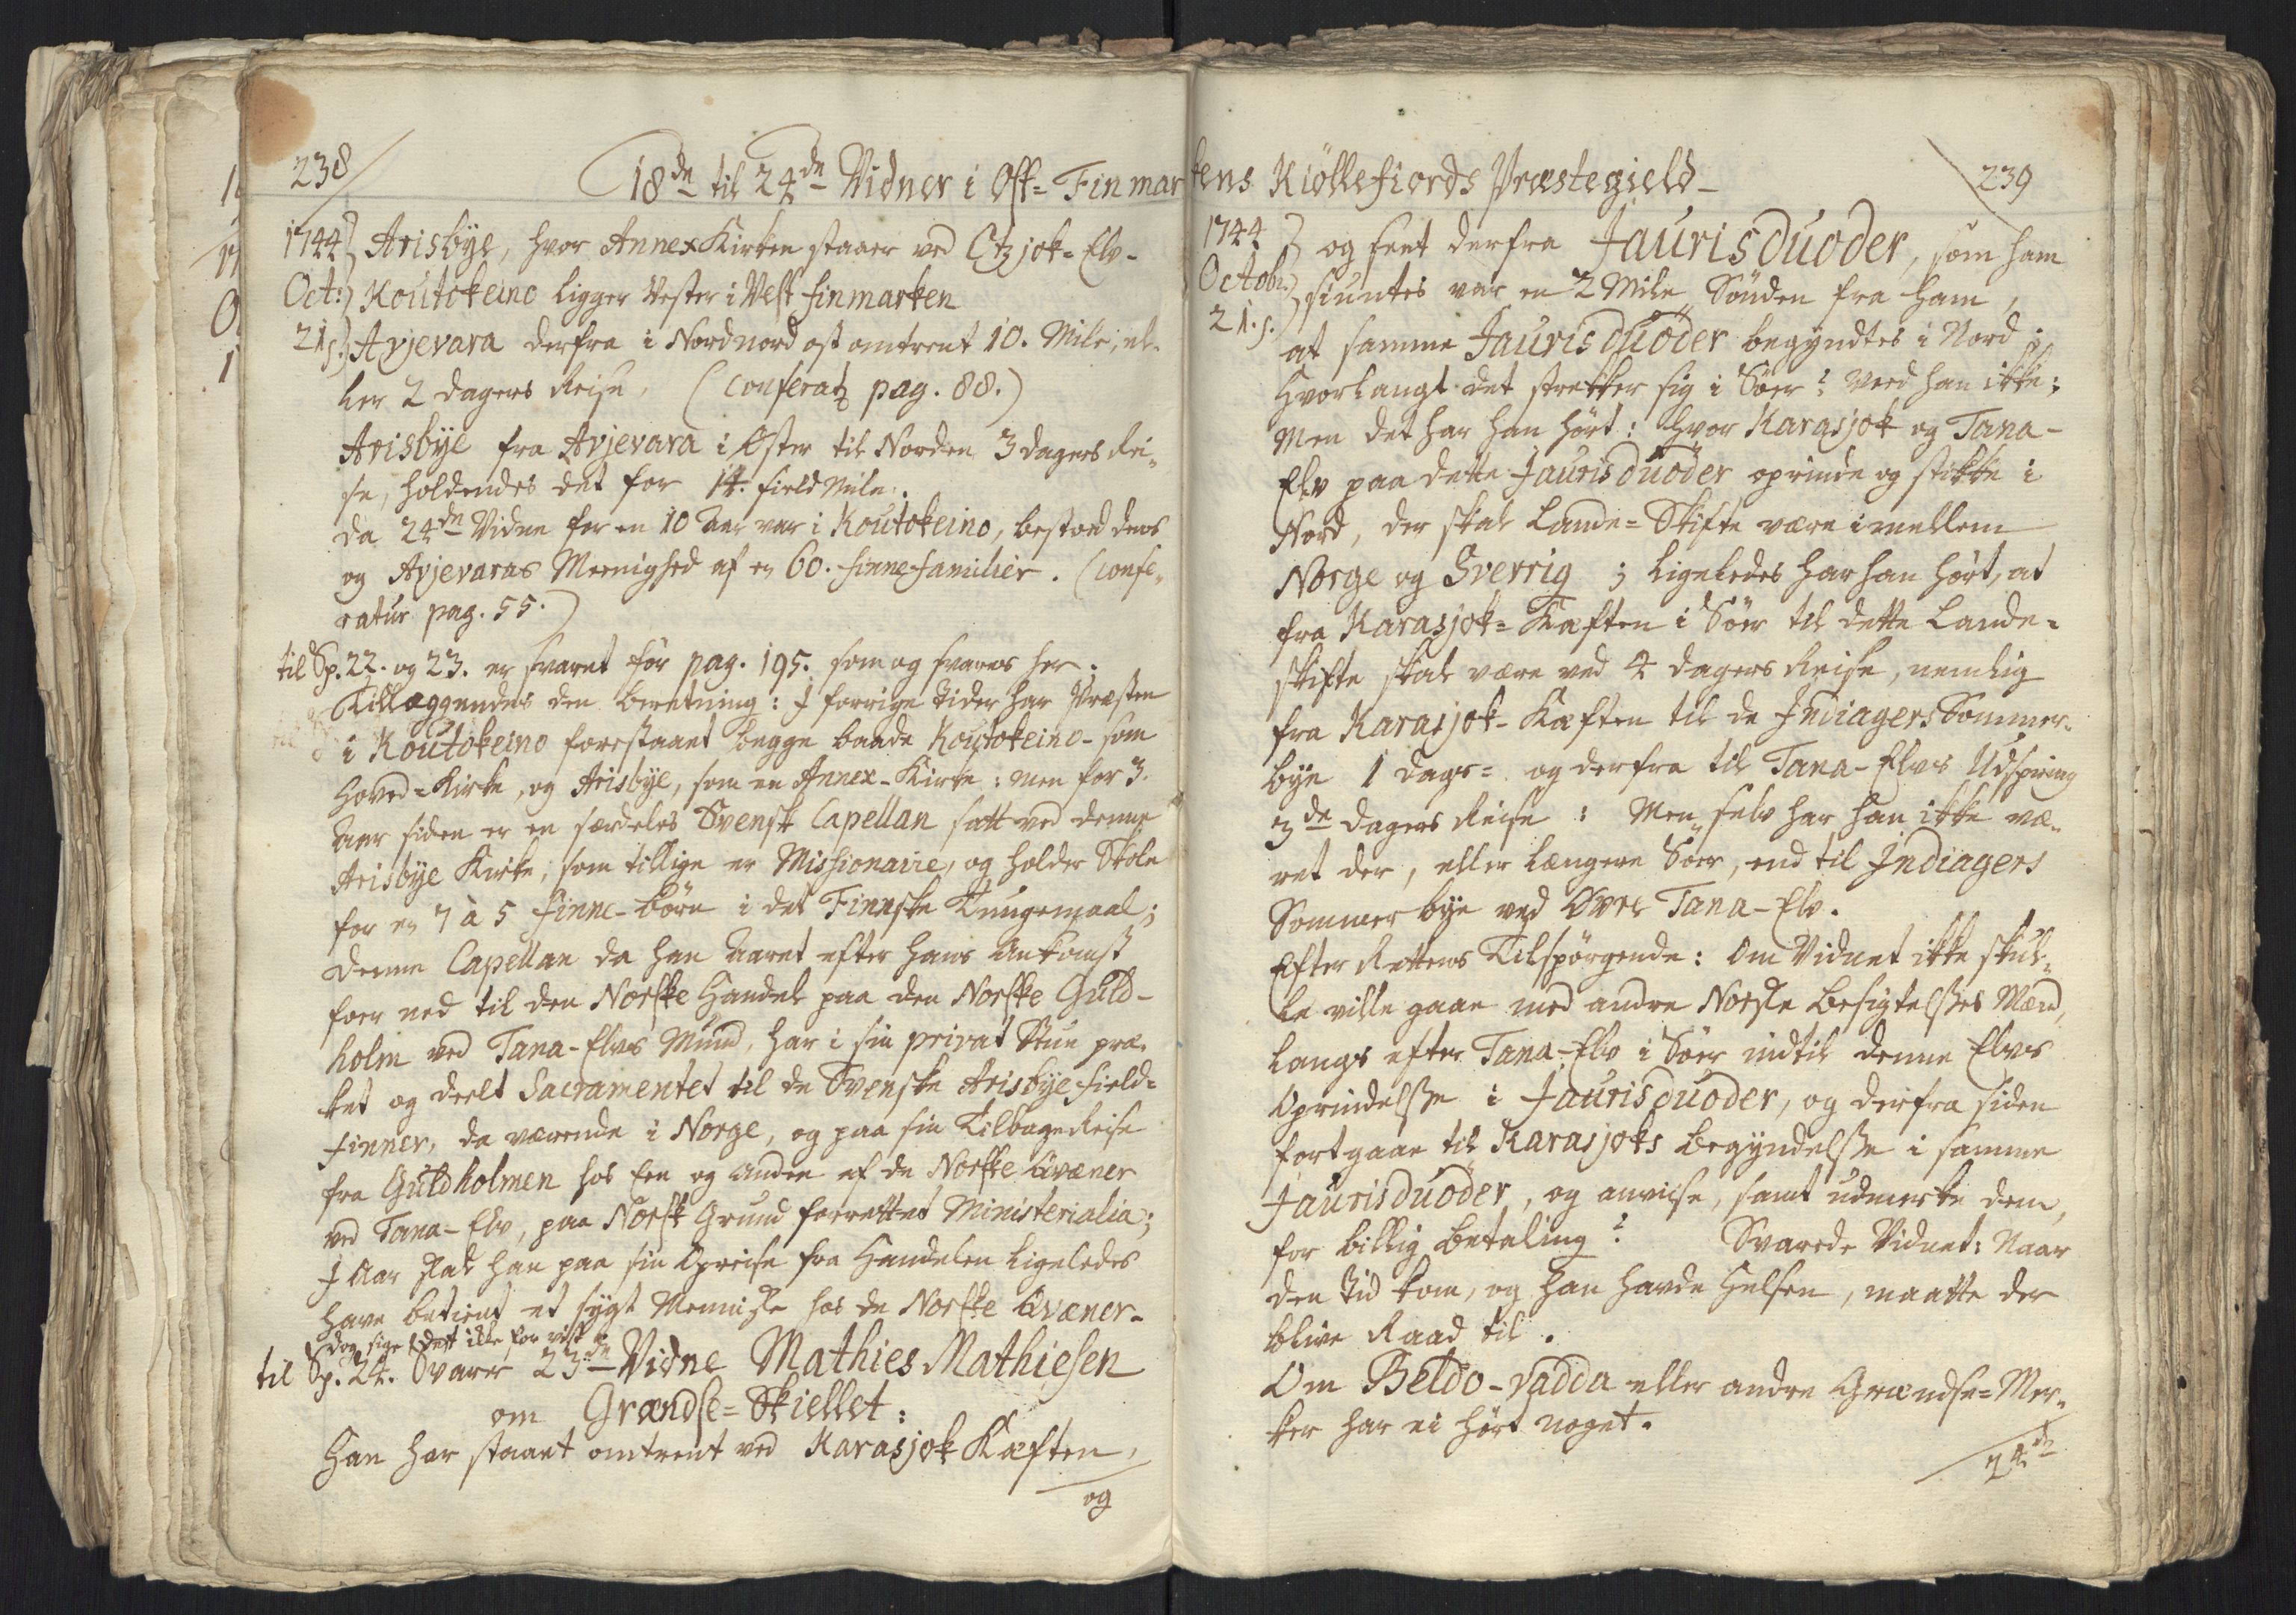 238
18de til 24de Vidner i Ost-Finmar
1744 Arisbÿe, hvor Annex Kirken staaer ved Utzjok-Elv-
Oct: Koutokeino ligger Vester i Vest finmarken
21s. Avjevara derfra i Nordnordost omtrent 10. Mile, el-
ler 2 dagers Reise, (conferatz pag. 88.)
Arisbÿe fra Avjevara i Øster til Norden 3 dagers Rei-
se, holdendes det for 14. field Mile.
da 24de Vidne for en 10 Aar var i Koutokeino, bestod dens
og Avjevaras Meenighed af en 60. finnefamilier. (confe-
ratur pag. 55.)
til Sp. 22. og 23. er svaret før pag. 195. som og svares her.
Tillæggendes den beretning: I forrige tider har Præsten
i Koutokeino forestaaet begge baade Koutokeino- som
Hoved-Kirke, og Arisbÿe, som en Annex-Kirke: men for 3.
Aar siden er en særdeles Svensk Capellan satt ved denne
Arisbÿe Kirke, som tillige er Missionaire, og holder Skole
for en 7 à 5 finne-børn i det Finnske Tungemaal;
denne Capellan da han Aaret efter hans Ankomst
foer ned til den Norske Handel paa den Norske Guld-
holm ved Tana-Elvs Mund, har i sin privat Stue præ-
ket og deelt Sacramentet til de Svenske Arisbÿe field-
finner, da værende i Norge, og paa sin Tilbage Reise
fra Guldholmen hos een og anden af de Norske Qvæner
ved Tana-Elv, paa Norsk Grund forrettet Ministerialia;
I Aar skal han paa sin Opreise fra Handelen ligeledes
have betient et sygt Menniske hos de Norske Qvæner-
dog siges dett ikke for vist
til Sp. 24. Svarer 23de Vidne Mathies Mathiesen
om Grændse-Skiellet:
Han har staaet omtrent ved Karasjok Kæften,
og
kens Kiöllefiords Præstegield-
239
1744 og seet derfra Jaurisduoder, som ham
Octobr: siuntes var en 2 Mile Sønden fra ham,
21.s. at samme Jaurisduöder begyndtes i Nord;
Hvorlangt det strekker sig i Søer? Veed han ikke:
Men det har han hørt: hvor Karasjok og Tana-
Elv paa dette Jaurisduöder oprinde og stikke i
Nord, der skal Lande-Skifte være imellem
Norge og Sverrig; ligeledes har han hørt, at
fra Karasjok-Kæften i Søer til dette Lande-
skifte skal være ved 4 dagers Reise, nemlig
fra Karasjok-Kæften til de Indiagers Sommer-
bÿe 1 dags- og derfra til Tana-Elvs Udspring
3de dagers Reise: Men selv har han ikke væ-
ret der, eller længere Söer, end til Indiagers
Sommer bÿe ved Øvre Tana-Elv.
Efter Rettens Tilspørgende: Om Vidnet ikke skul-
le ville gaae med andre Norske Besigtelses Mænd,
langs efter Tana-Elv i Søer indtil denne Elvs
Oprindelse i Jaurisduoder, og derfra siden
fortgaae til Karasjoks begyndelse i samme
Jaurisduöder, og anviise, samt udmerke dem,
for billig betaling? Svarede Vidnet: Naar
den tid kom, og han havde Helsen, maatte der
blive Raad til.
Om Beldo-vadda eller andre Grændse-Mer-
ker har ei hørt noget.
24de